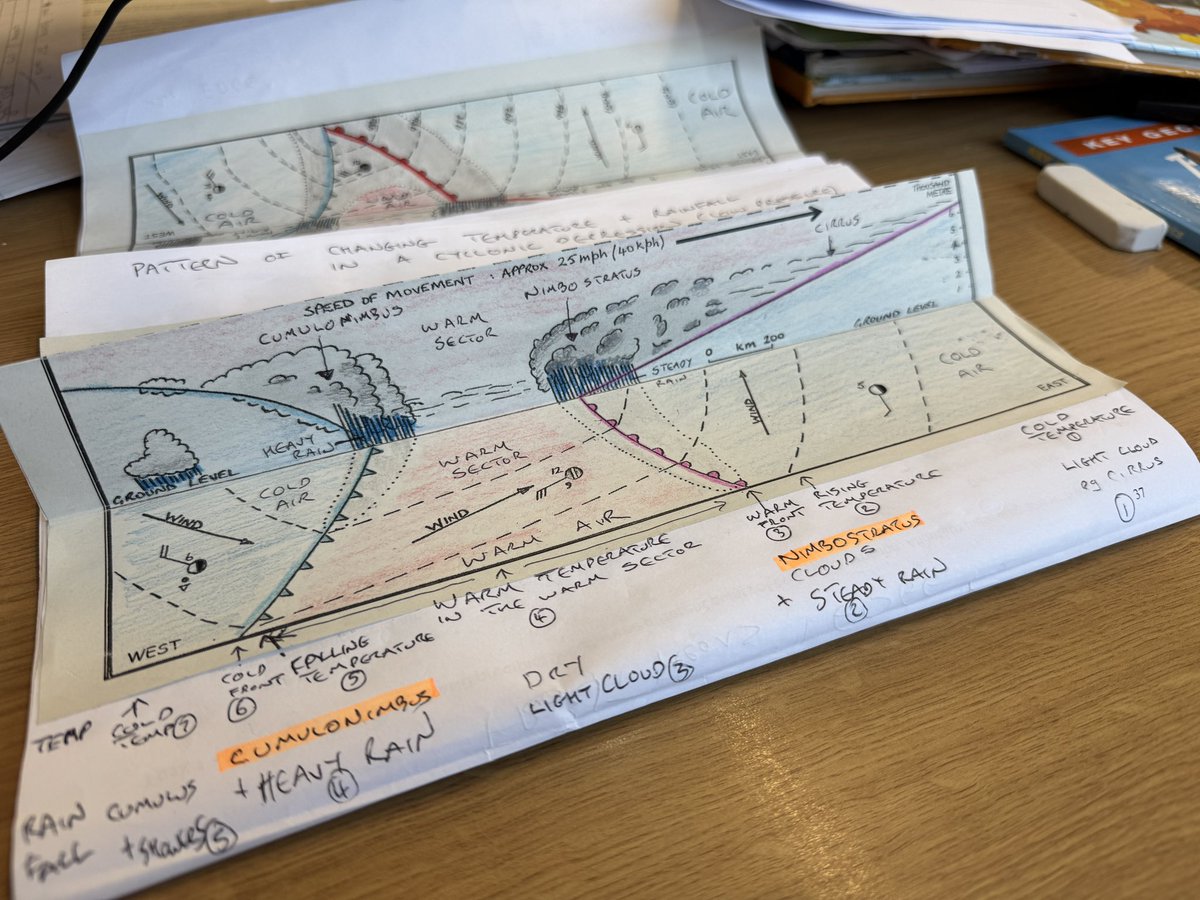 COLD AIR
COLD AIR
PATTERN OF CHANGING TEMPERATURE + RAINFALL
IN A CYCLONIC DEPRESSION
THOUSAND
METRE
SPEED OF MOVEMENT : APPROX 25mph (40kph)
CIRRUS
CUMULONIMBUS
NIMBOSTRATUS
WARM
SECTOR
HEAVY
RAIN
STEADY
RAIN
0 km 200
GROUND LEVEL
GROUND LEVEL
COLD
AIR
EAST
WIND
5
WARM
SECTOR
12
9
WIND
WARM AIR
COLD
AIR
WIND
6
WEST
COLD
TEMPERATURE
1
RISING
TEMPERATURE
2
WARM
FRONT
3
WARM TEMPERATURE
IN THE WARM SECTOR
4
FALLING
TEMPERATURE
5
COLD
FRONT
6
TEMP
COLD
TEMP 7
LIGHT CLOUD
eg CIRRUS
1
37
NIMBOSTRATUS
CLOUDS
+ STEADY RAIN
2
DRY
LIGHT CLOUD 3
CUMULONIMBUS
+ HEAVY RAIN
4
RAIN
FALL
CUMULUS
5
KEY GEO